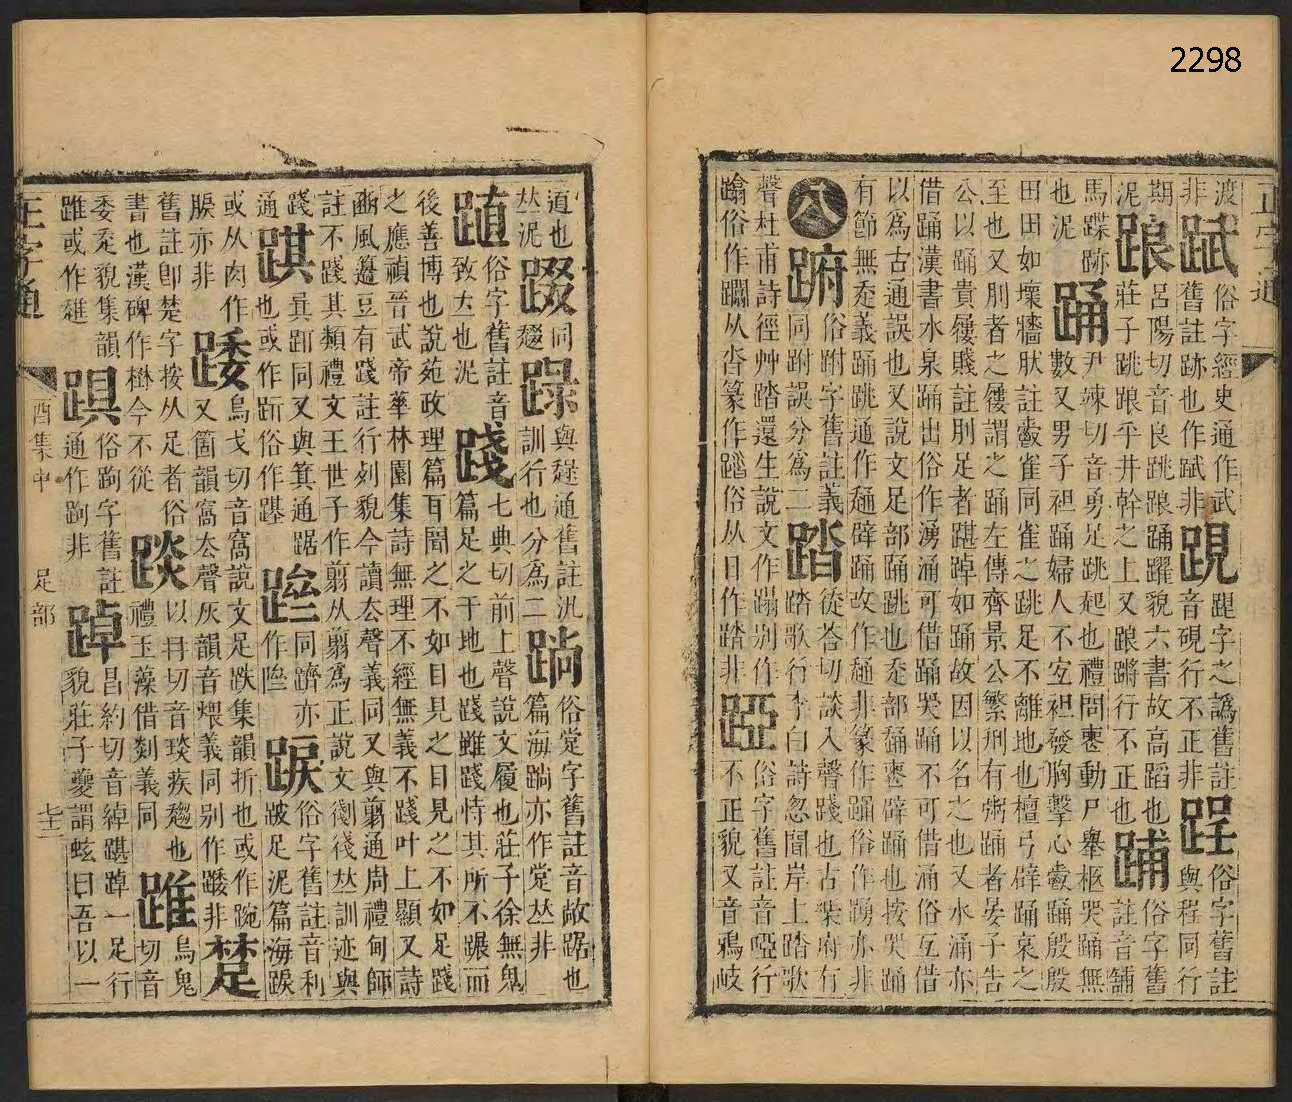 2298
正字通
渡
非
䟼
俗字經史通作武
舊註跡也作䟼非
䟰
䟰字之譌舊註
音硯行不正非
踁
俗字舊註
與程同行
期
泥
踉
呂陽切音良跳踉踊躍貌六書故高蹈也
莊子跳踉乎井幹之上又踉蹡行不正也
䠙
俗字舊
註音舖
馬蹀跡
也泥
踊
尹竦切音勇足跳起也禮問喪動尸舉柩哭踊無
數又男子袒踊婦人不宜袒發胸擊心爵踊殷殷
田田如壞牆狀註爵雀同雀之跳足不離地也檀弓辟踊哀之
至也又刖者之屨謂之踊左傳齊景公繁刑有鬻踊者晏子告
公以踊貴屨賤註刖足者踸踔如踊故因以名之也又水涌亦
借踊漢書水泉踊出俗作湧涌可借踊哭踊不可借涌俗互借
以爲古通誤也又說文足部踊跳也走部䞻喪辟踊也按哭踊
有節無走義踊跳通作䞻辟踊改作䞻非篆作踊俗作踴亦非
八
䠵
俗跗字舊註義
同跗誤分爲二
踏
從荅切談入聲踐也古樂府有
踏歌行李白詩忽聞岸上踏歌
聲杜甫詩徑艸踏還生說文作蹋別作
䠛俗作躢从沓篆作蹹俗从日作踏非
踂
俗字舊註音啞行
不正貌又音鴉岐
道也
𠀤泥
踀
同
趨
踛
與趢通舊註汎
訓行也分爲二
踻
俗堂字舊註音敞踞也
篇海踻亦作堂𠀤非
䠠
俗字舊註音
致𡗗也泥
踐
七典切前上聲說文履也莊子徐無鬼
篇足之于地也踐雖踐恃其所不蹍而
後善博也說苑政理篇耳聞之不如目見之目見之不如足踐
之應禎晉武帝華林園集詩無理不經無義不踐叶上顯又詩
豳風籩豆有踐註行列貌今讀去聲義同又與翦通周禮甸師
註不踐其類禮文王世子作翦从翦爲正說文衜後𠀤訓迹與
踐
通
踑
㠱𨀁同又與箕通踞
也或作䟚俗作踑
䠀
同躋亦
作隮
䟾
俗字舊註音利
跛足泥篇海䟾
或从肉作
腂亦非
踒
烏戈切音窩說文足跌集韻折也或作踠
又箇韻窩去聲灰韻音煨義同别作踒非
䠂
舊註卽楚字按从足者俗
書也漢碑作檚今不從
䠊
以冄切音琰疾趨也
禮玉藻借剡義同
踓
烏鬼
切音
委走貌集韻
踓或作䧳
踙
俗跔字舊註
通作跔非
踔
昌約切音綽踸踔一足行
貌莊子夔謂蚿曰吾以一
正字通
酉集中 足部 七十二